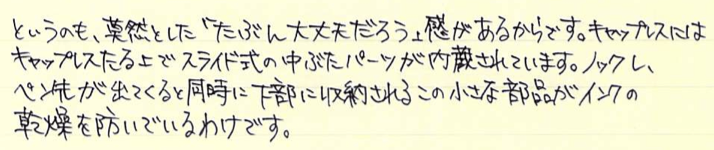 というのも、莫然とした「たぶん大丈夫だろう」感があるからです。キャップレスには
キャップレスたる上でスライド式の中ぶたパーツが内蔵されています。ノックし、
ペン先が出てくると同時に下部に収納されるこの小さな部品がインクの
乾燥を防いでいるわけです。